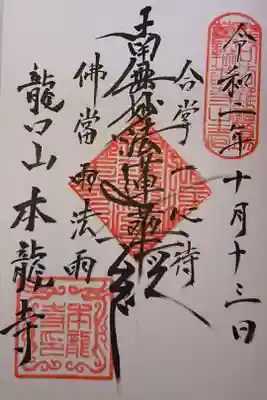 令和二年十月十三日
合掌一心待
南無妙法蓮華經
佛當雨法雨
龍口山本龍寺